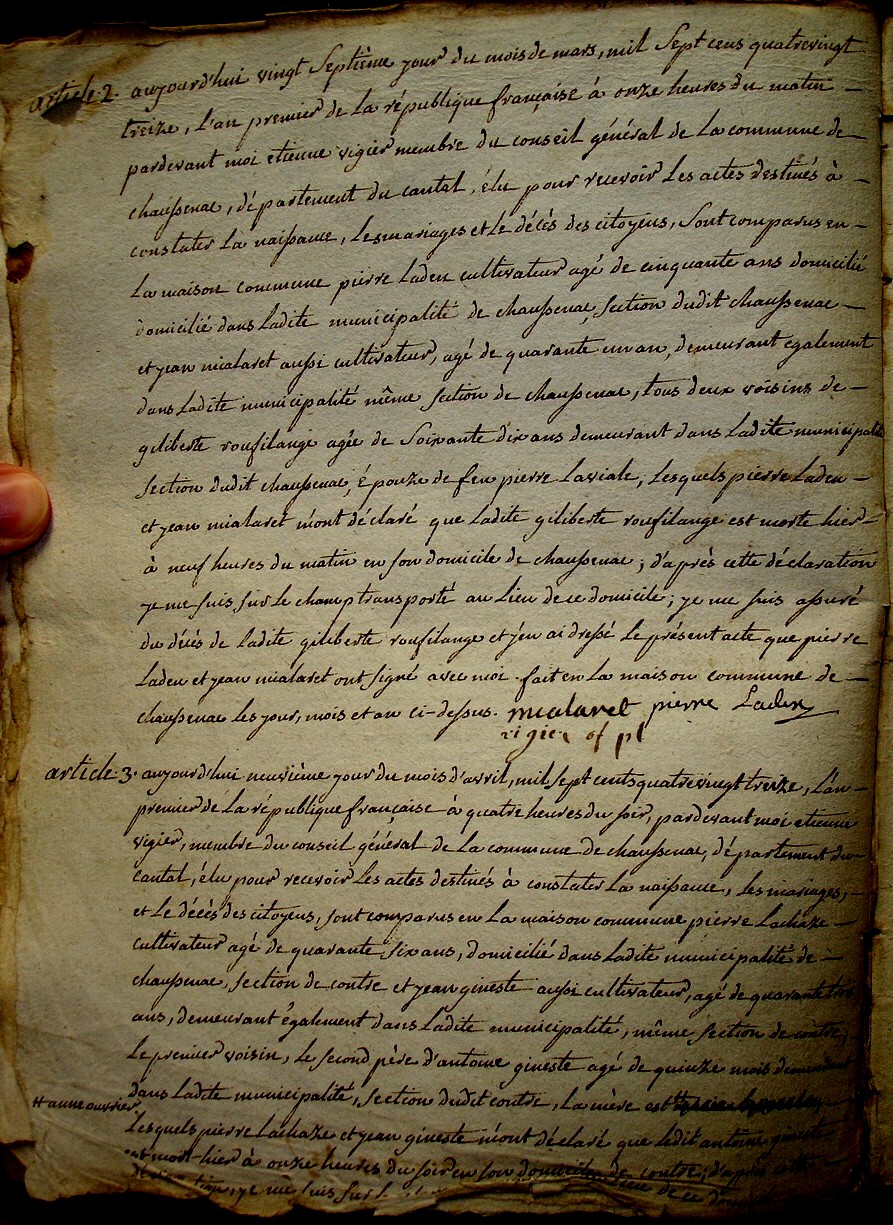 article 2. aujourd'hui vingt Septième jour du mois de mars, mil Sept cens quatrevingt
treize, L'an premier de La république française à onze heures du matin
pardevant moi etienne vigier membre du conseil général de La commune de
chaussenac, département du cantal, élu pour recevoir Les actes destinés à
constater La naissance, Les mariages et Le décès des citoyens, Sont comparus en
La maison commune pierre Laden cultivateur agé de cinquante ans domicilié
domicilié dans Ladite municipalité de chaussenac, Section dudit chaussenac
et jean mialaret aussi cultivateur, agé de quarante un an, demeurant également
dans Ladite municipalité même Section de chaussenac, tous deux voisins de
giliberte roufilange agée de Soixante dix ans demeurant dans Ladite municipalité
Section dudit chaussenac, Épouze de feu pierre Laviale, Lesquels pierre Laden
et jean mialaret m'ont déclaré que Ladite giliberte roufilange est morte hier
à neuf heures du matin en son domicile de chaussenac; d'après cette déclaration
je me suis sur Le champ transporté au Lieu de ce domicile; je me suis assuré
du décès de Ladite giliberte roufilange et j'en ai dressé Le présent acte que pierre
Laden et jean mialaret ont signé avec moi. fait en La maison commune de
chaussenac Les jour, mois et an ci-dessus. mialaret pierre Laden
vigier of pl
article 3. aujourd'hui neuvième jour du mois d'avril, mil sept cents quatrevingt treize, L'an
premier de La république française à quatre heures du soir, pardevant moi etienne
vigier, membre du conseil général de La commune de chaussenac, département du
cantal, élu pour recevoir Les actes destinés à constater La naissance, Les mariages,
et Le décès des citoyens, sont comparus en La maison commune pierre Lachaze
cultivateur agé de quarante six ans, domicilié dans Ladite municipalité de
chaussenac, section de contre et jean gineste aussi cultivateur, agé de quarante trois
ans, demeurant également dans Ladite municipalité, même section de contre,
Le premier voisin, Le second père d'antoine gineste agé de quinze mois demeurant
dans Ladite municipalité, section dudit contre, La mère est
# anne ouvrier
Lesquels pierre Lachaze et jean gineste m'ont déclaré que Ledit antoine gineste
est mort hier à onze heures du soir en son domicile de contre; d'après cette
déclaration, je me suis sur L de ce